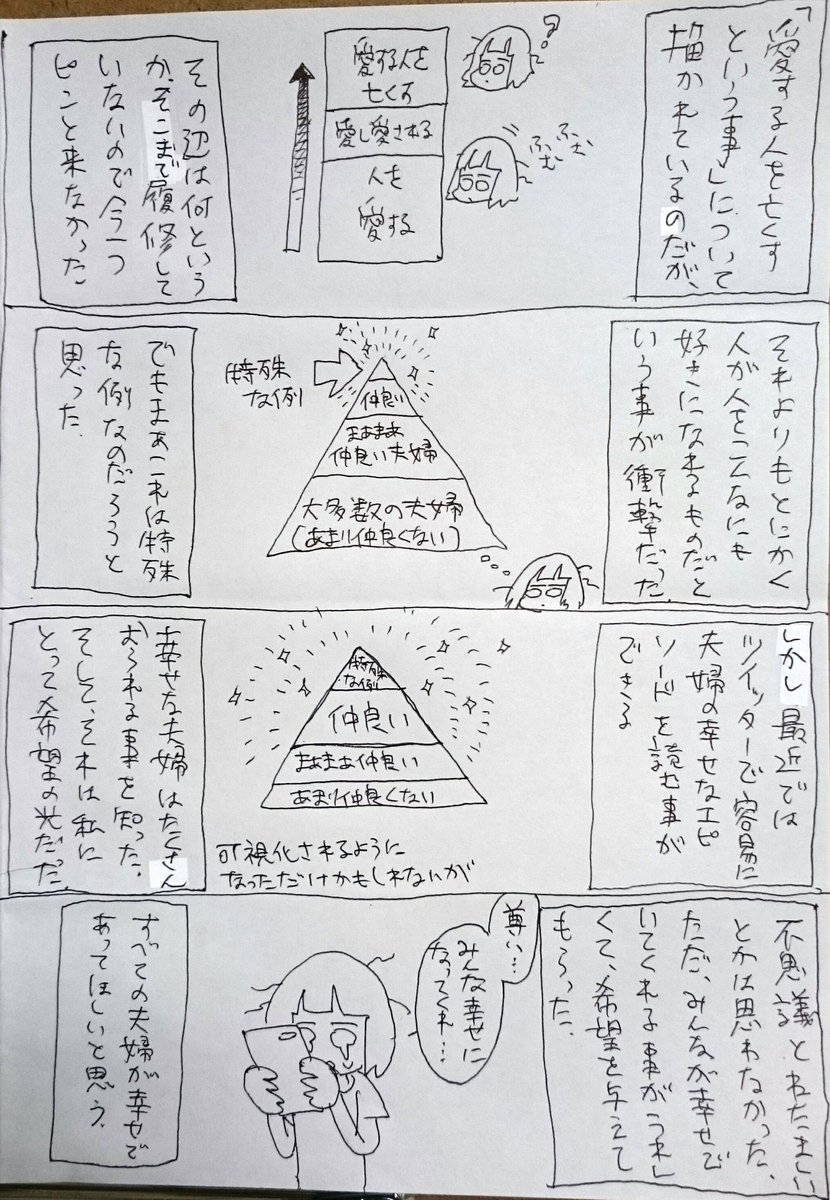 「愛する人を亡くす
という事」について
描かれているのだが、
?
愛する人を
亡くす
愛し愛される
人を
愛する
ふむ
ふむ
その辺は何という
か、そこまで履修して
いないので今一つ
ピンと来なかった
それよりもとにかく
人が人をこんなにも
好きになれるものだと
いう事が衝撃だった
特殊
な例
仲良い
まあまあ
仲良い夫婦
大多数の夫婦
(あまり仲良くない)
でもまぁこれは特殊
な例なのだろうと
思った
しかし最近では
ツイッターで容易に
夫婦の幸せなエピ
ソードを読む事が
できる
特殊
な例
仲良い
まあまあ仲良い
あまり仲良くない
可視化されるように
なっただけかもしれないが
幸せな夫婦はたくさん
おられる事を知った、
そして、それは私に
とって希望の光だった
不思議とねたましい
とかは思わなかった、
ただ、みんなが幸せで
いてくれる事がうれし
くて、希望を与えて
もらった、
尊い…
みんな幸せに
なってくれ…
すべての夫婦が幸せで
あってほしいと思う、